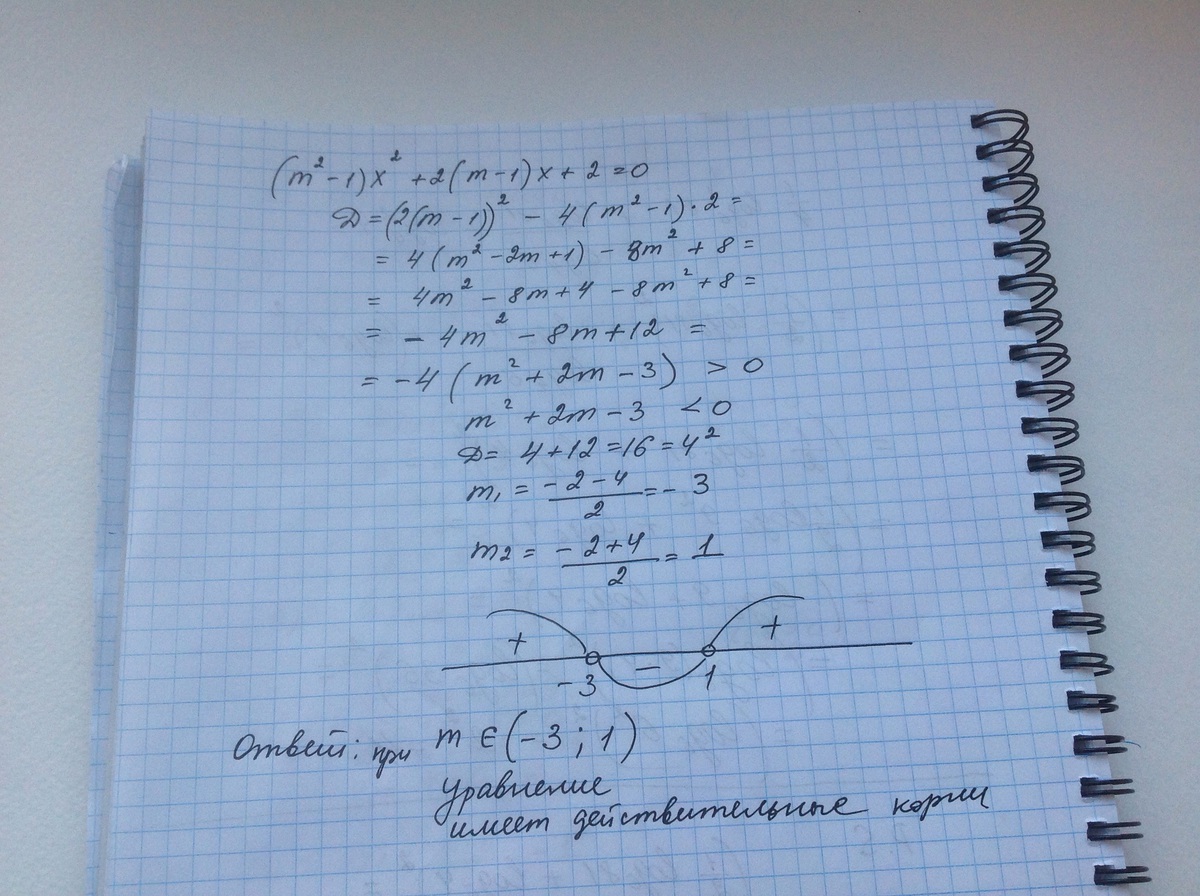 (m² - 1)x² + 2(m - 1)x + 2 = 0
D = (2(m - 1))² - 4(m² - 1) · 2 =
= 4(m² - 2m + 1) - 8m² + 8 =
= 4m² - 8m + 4 - 8m² + 8 =
= - 4m² - 8m + 12 =
= -4(m² + 2m - 3) > 0
m² + 2m - 3 < 0
D = 4 + 12 = 16 = 4²
m₁ = (-2-4)/2 = - 3
m₂ = (-2+4)/2 = 1
+ - +
-3 1
Ответ: при m ∈ (-3 ; 1)
уравнение
имеет действительные корни